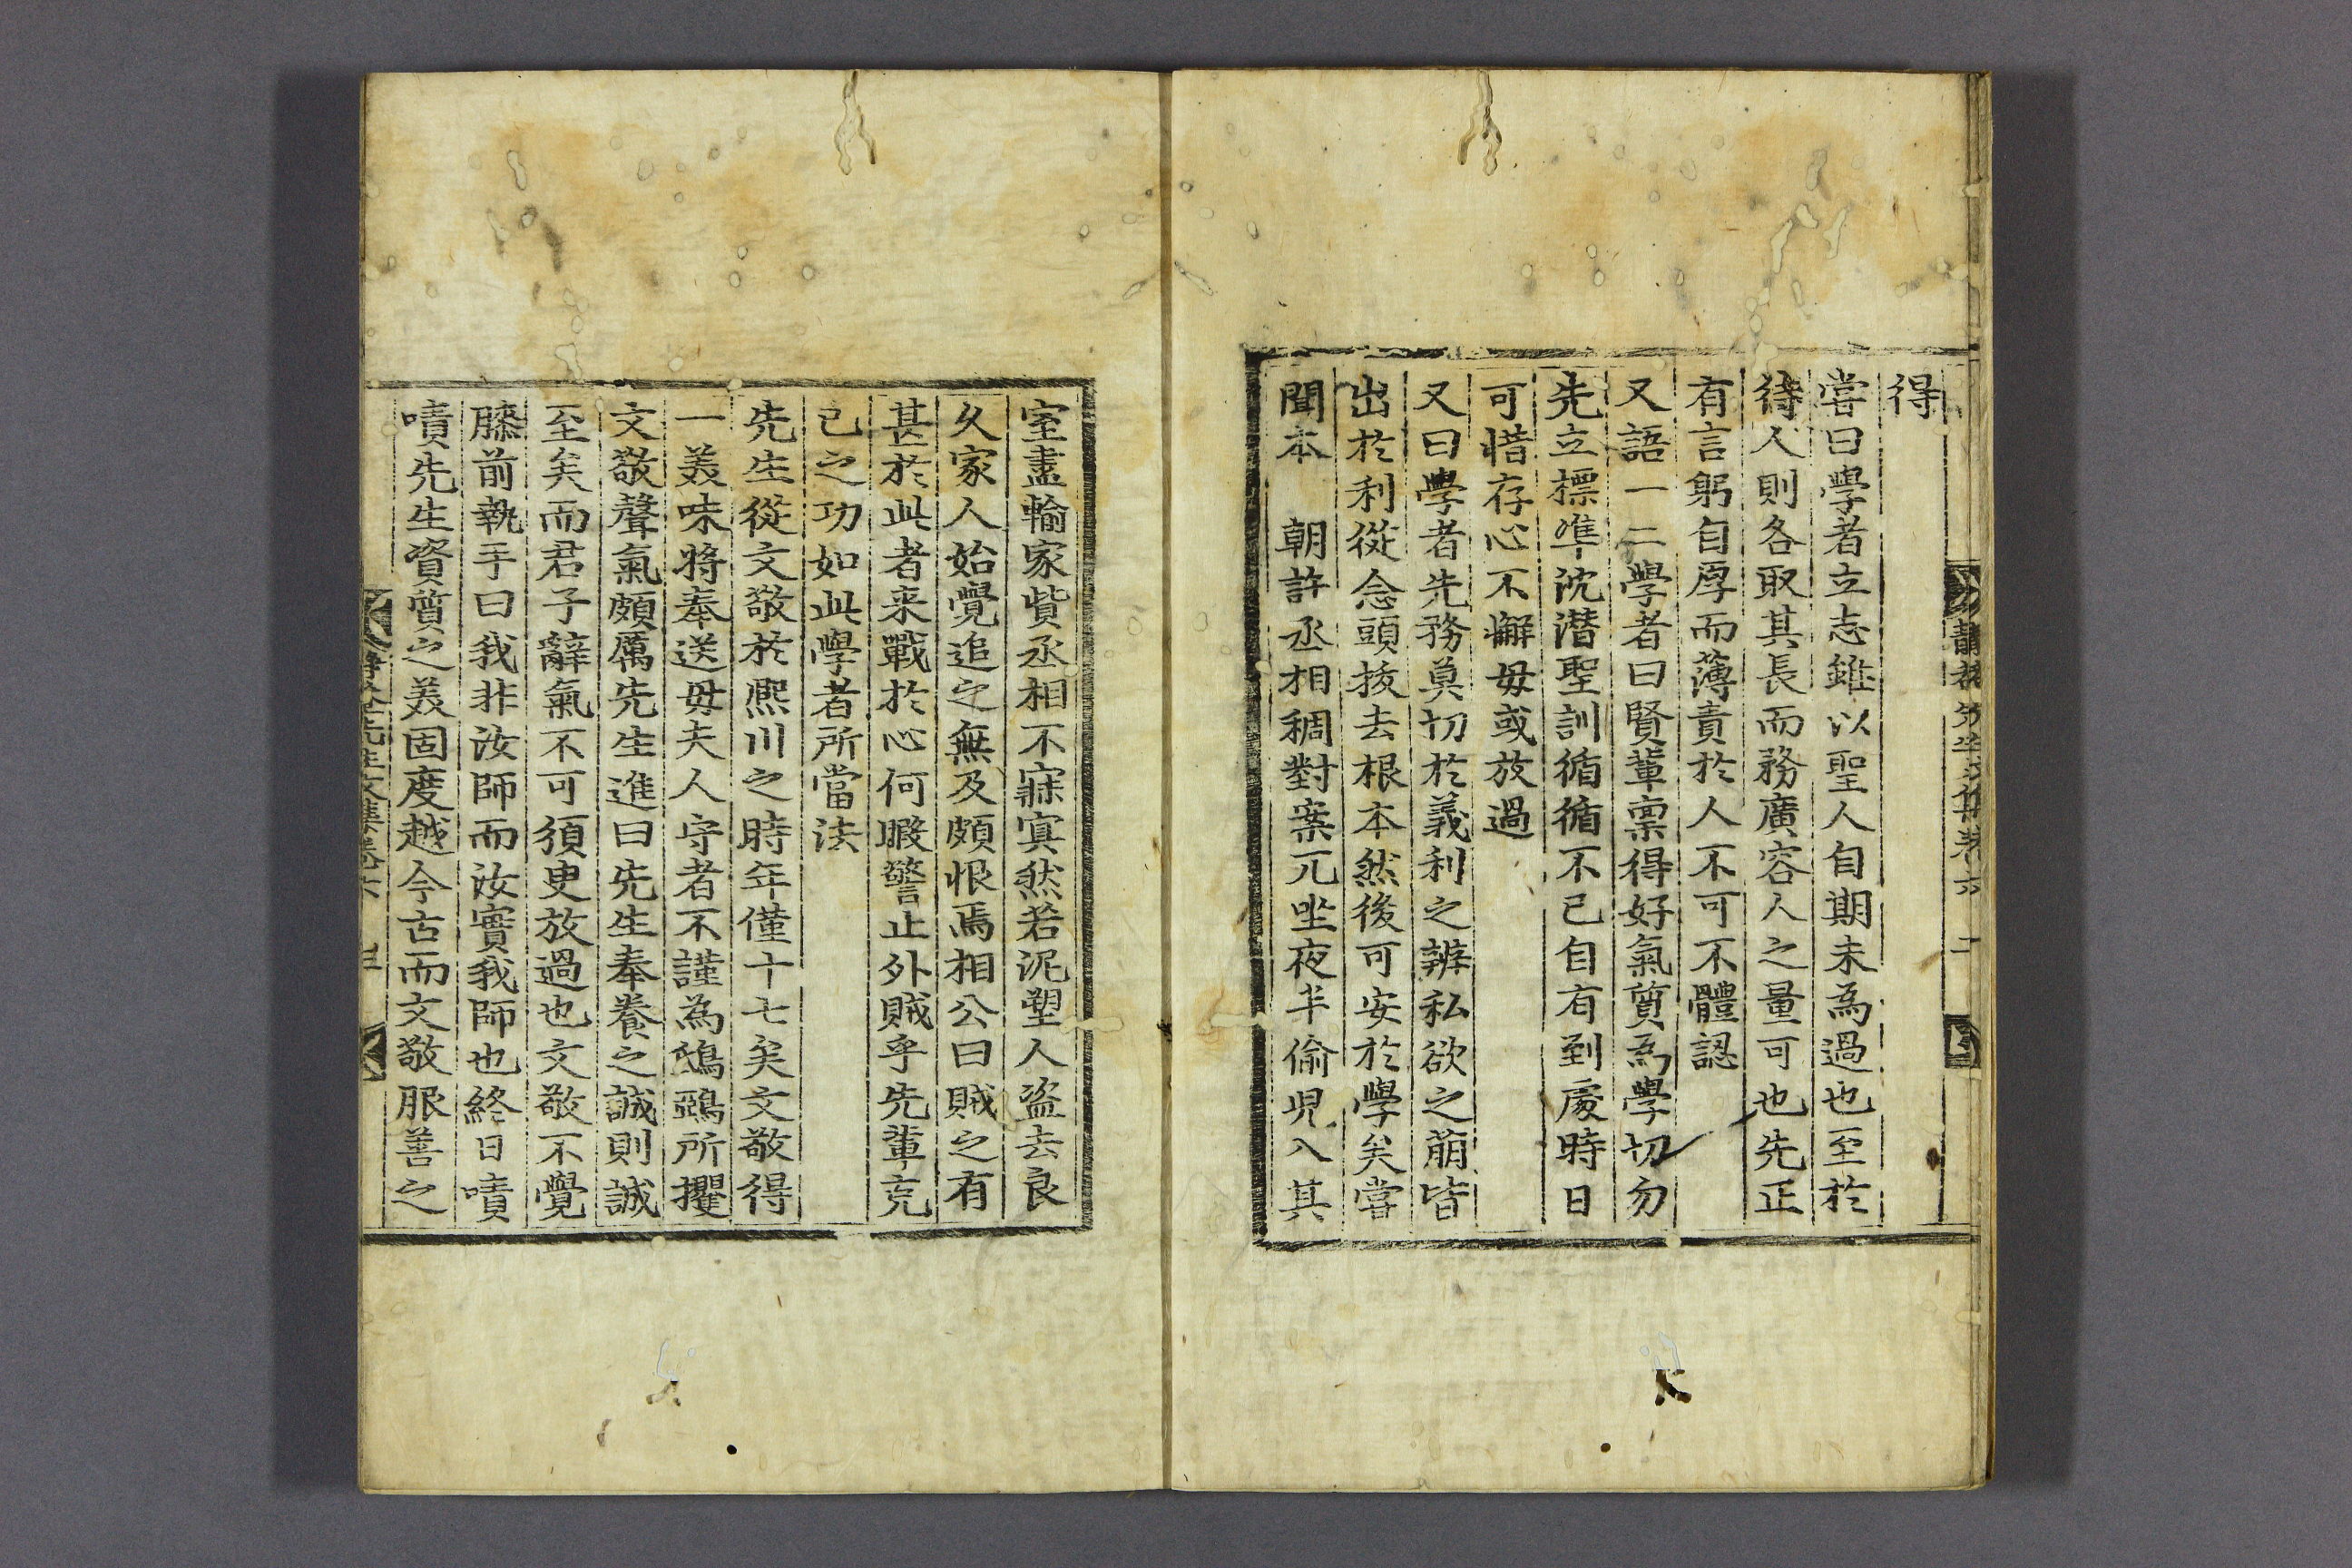 得
嘗曰學者立志雖以聖人自期未為過也至於
待人則各取其長而務廣容人之量可也先正
有言躬自厚而薄責於人不可不體認
又語一二學者曰賢輩稟得好氣質為學切勿
先立標準沈潛聖訓循循不已自有到處時日
可惜存心不懈毋或放過
又曰學者先務莫切於義利之辨私欲之萌皆
出於利從念頭拔去根本然後可安於學矣嘗
聞本 朝許丞相稠對案兀坐夜半偷児入其
室盡輸家貲丞相不寐寘然若泥塑人盜去良
久家人始覺追之無及頗恨焉相公曰賊之有
甚於此者来戰於心何暇警止外賊乎先輩克
己之功如此學者所當法
先生從文敬於熙川之時年僅十七矣文敬得
一美味將奉送毋夫人守者不謹為鴟鵶所攫
文敬聲氣頗厲先生進曰先生奉養之誠則誠
至矣而君子辭氣不可須臾放過也文敬不覺
膝前執手曰我非汝師而汝實我師也終日嘖
嘖先生資質之美固度越今古而文敬服善之
靜菴先生文集卷六